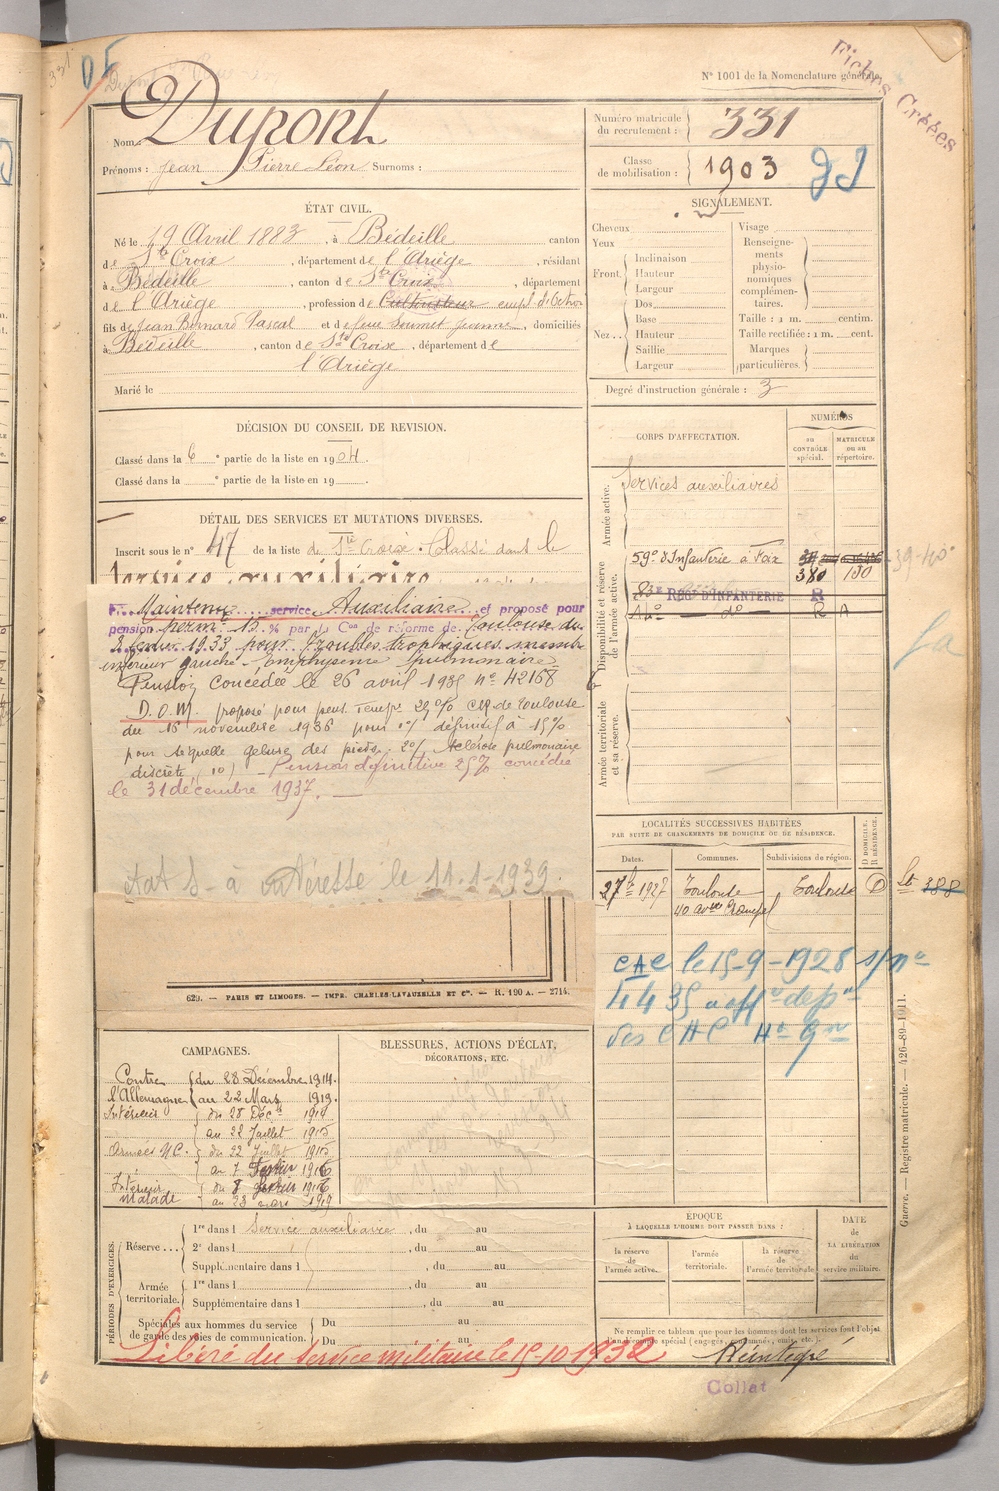 331
DF
N° 1001 de la Nomenclature générale.
Fiches Créées
Nom Dupont
Prénoms : Jean Pierre Léon Surnoms :
Numéro matricule du recrutement : 331
Classe de mobilisation : 1903
ÉTAT CIVIL.
Né le 19 Avril 1883, à Bédeille canton
de Ste Croix, département de l'Ariège, résidant
à Bédeille, canton de Ste Croix, département
de l'Ariège, profession de Cultivateur empl. d'Octroi
fils de Jean Bernard Pascal et de feue Soumet Jeanne, domiciliés
à Bédeille, canton de Ste Croix, département de
l'Ariège
Marié le
SIGNALEMENT.
Cheveux
Yeux
Front. Inclinaison
Hauteur
Largeur
Dos
Nez .. Base
Hauteur
Saillie
Largeur
Visage
Renseignements physionomiques complémentaires.
Taille : 1 m. centim.
Taille rectifiée : 1 m. cent.
Marques particulières.
Degré d'instruction générale : 3
DÉCISION DU CONSEIL DE REVISION.
Classé dans la 6 e partie de la liste en 1904.
Classé dans la e partie de la liste en 19 .
DÉTAIL DES SERVICES ET MUTATIONS DIVERSES.
Inscrit sous le n° 47 de la liste de Ste Croix. Classé dans le
service auxiliaire
Maintenu service Auxiliaire et proposé pour
pension perm. 15 % par la Con de réforme de Toulouse du
1933 pour Troubles trophiques membre
inférieur gauche - Emphysème pulmonaire
Pension concédée le 26 avril 1935 n° 42168
D.O.M. proposé pour pens. temp. 25% CR de Toulouse
du 16 novembre 1936 pour 1°/ définitif à 15%
pour séquelle gelure des pieds. 2°/ sclérose pulmonaire
discrète (10) - Pension définitive 25% concédée
le 31 décembre 1937.
état S - à intéressé le 11-1-1939.
629. — PARIS ET LIMOGES. — IMPR. CHARLES-LAVAUZELLE ET Cie. — R. 190 A. — 2714.
CORPS D'AFFECTATION.
NUMÉROS
au CONTRÔLE spécial.
MATRICULE ou au répertoire.
Armée active.
Services auxiliaires
Disponibilité et réserve de l'armée active.
59e d'Infanterie à Foix
380 130
83e REGt D'INFANTERIE R
do R A
Armée territoriale et sa réserve.
LOCALITÉS SUCCESSIVES HABITÉES
PAR SUITE DE CHANGEMENTS DE DOMICILE OU DE RÉSIDENCE.
Dates. Communes. Subdivisions de région. D DOMICILE. R RÉSIDENCE.
1927 Toulouse Toulouse D
388
CAC le 15-9-1928 s/ no
4435 aff
des CAC
Guerre. — Registre matricule. — 426-89-1911.
CAMPAGNES.
Contre du 28 Décembre 1914.
l'Allemagne au 22 Mars 1919.
Intérieur du 28 Déc. 1914
au 22 Juillet 1915
Armées du 22 Juillet 1915
au 7 Février 1916
Intérieur du 8 Février 1916
malade au 23 mars 1919
BLESSURES, ACTIONS D'ÉCLAT, DÉCORATIONS, ETC.
PÉRIODES D'EXERCICES.
Réserve ... 1re dans l Service auxiliaire, du au
2e dans l , du au
Supplémentaire dans l , du au
Armée territoriale. 1re dans l , du au
Supplémentaire dans l , du au
Spéciales aux hommes du service de garde des voies de communication. Du au
Du au
Libéré du service militaire le 15-10 1932
ÉPOQUE
À LAQUELLE L'HOMME DOIT PASSER DANS :
la réserve de l'armée active.
l'armée territoriale.
la réserve de l'armée territoriale
DATE de LA LIBÉRATION du service militaire.
Ne remplir ce tableau que pour les hommes dont les services font l'objet
d'un décompte spécial (engagés, omis, etc.).
Réintégré
Collat